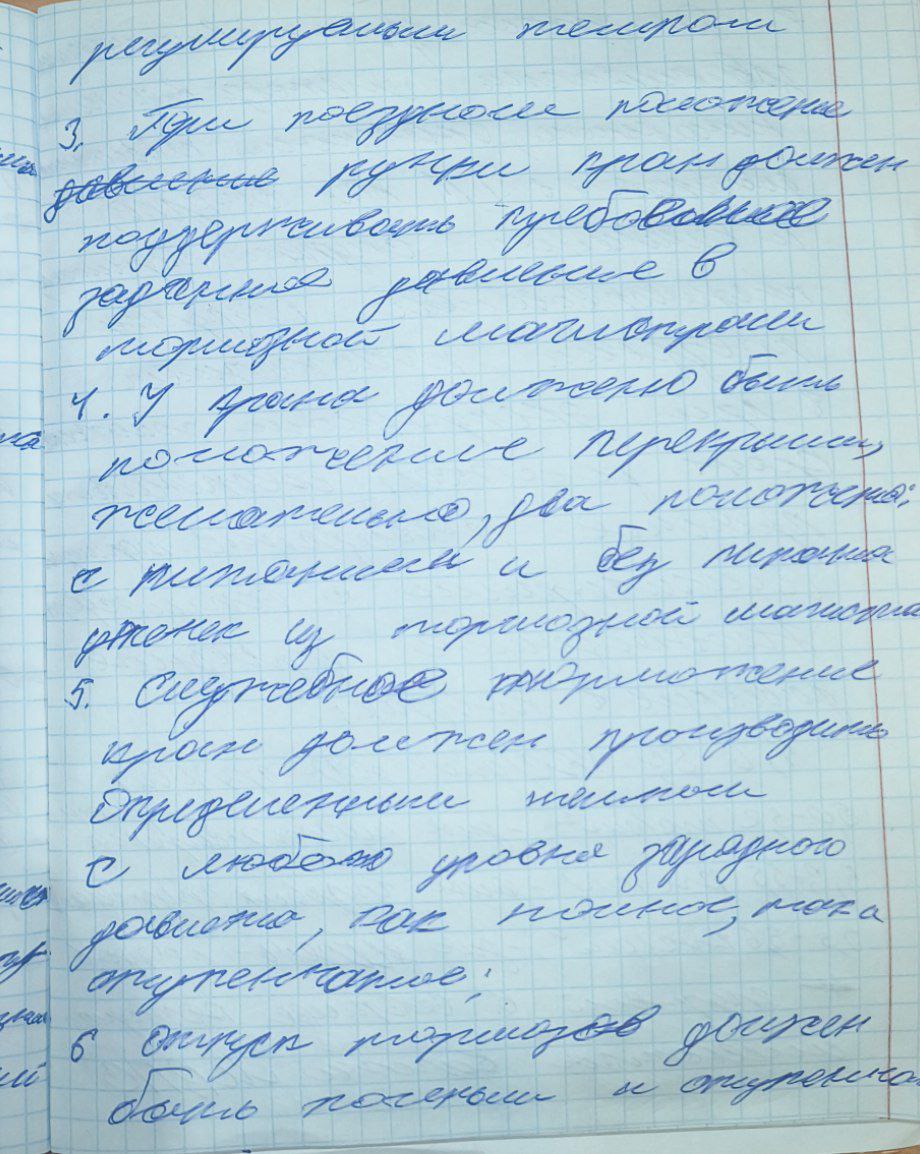 регулируемым темпом
3. При поездном положение
давление ручки кран должен
поддерживать
заданное давление в
тормозной магистрали
4. У крана должено быть
положение перекрыши,
желательно, два положения:
с питанием и без питания
утечек из тормозной магистра
5. Служебное торможение
кран должен производить
определенным темпом
с любого уровня зарядного
давления, как полное, так и
ступенчатое;
6 Отпуск тормозов должен
быть полным и ступенча